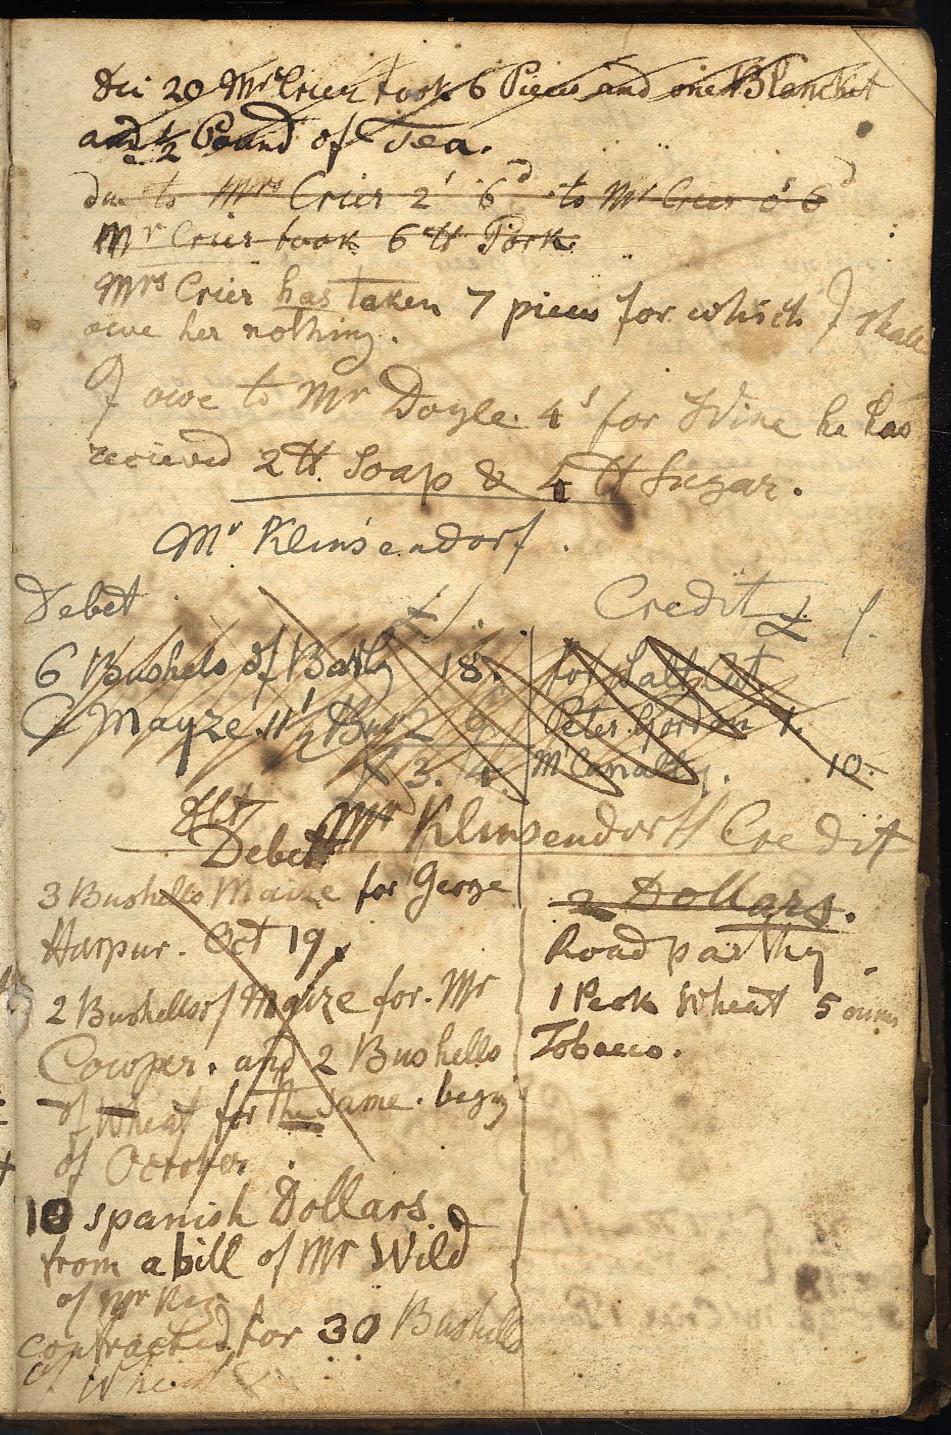 Dec 20 Mrs Crier took 6 Pieces and one Blancket
and 1/2 Pound of Tea.
due to Mrs Crier 2s 6d to Mr Crier 0s 6d
Mr Crier took 6 ℔ Pork.
Mrs Crier has taken 7 pieces for which I shall
owe her nothing.
I owe to Mr Doyle 4s for Wine he has
recieved 2 ℔ Soap & 4 ℔ Sugar.
Mr Klinsendorf.
Debet
Credit £
6 Bushels of Barly 18.
Mayze 11 1/2 Bus 2
£ 3. 4.
for
Peter Gordon 1.
10.
Mr Klinsendorff Credit
Debet
3 Bushells Maize for George
Harpur. Oct 19
2 Bushells of Mayze for Mr
Cowper. and 2 Bushells
of Wheat for the same.
of October.
10 spanish Dollars
from a bill of Mr Wild
of Mr
contracted for 30 Bushells
of Wheat
2 Dollars.
Road
1 Peck Wheat 5 ounces
Tobacco.